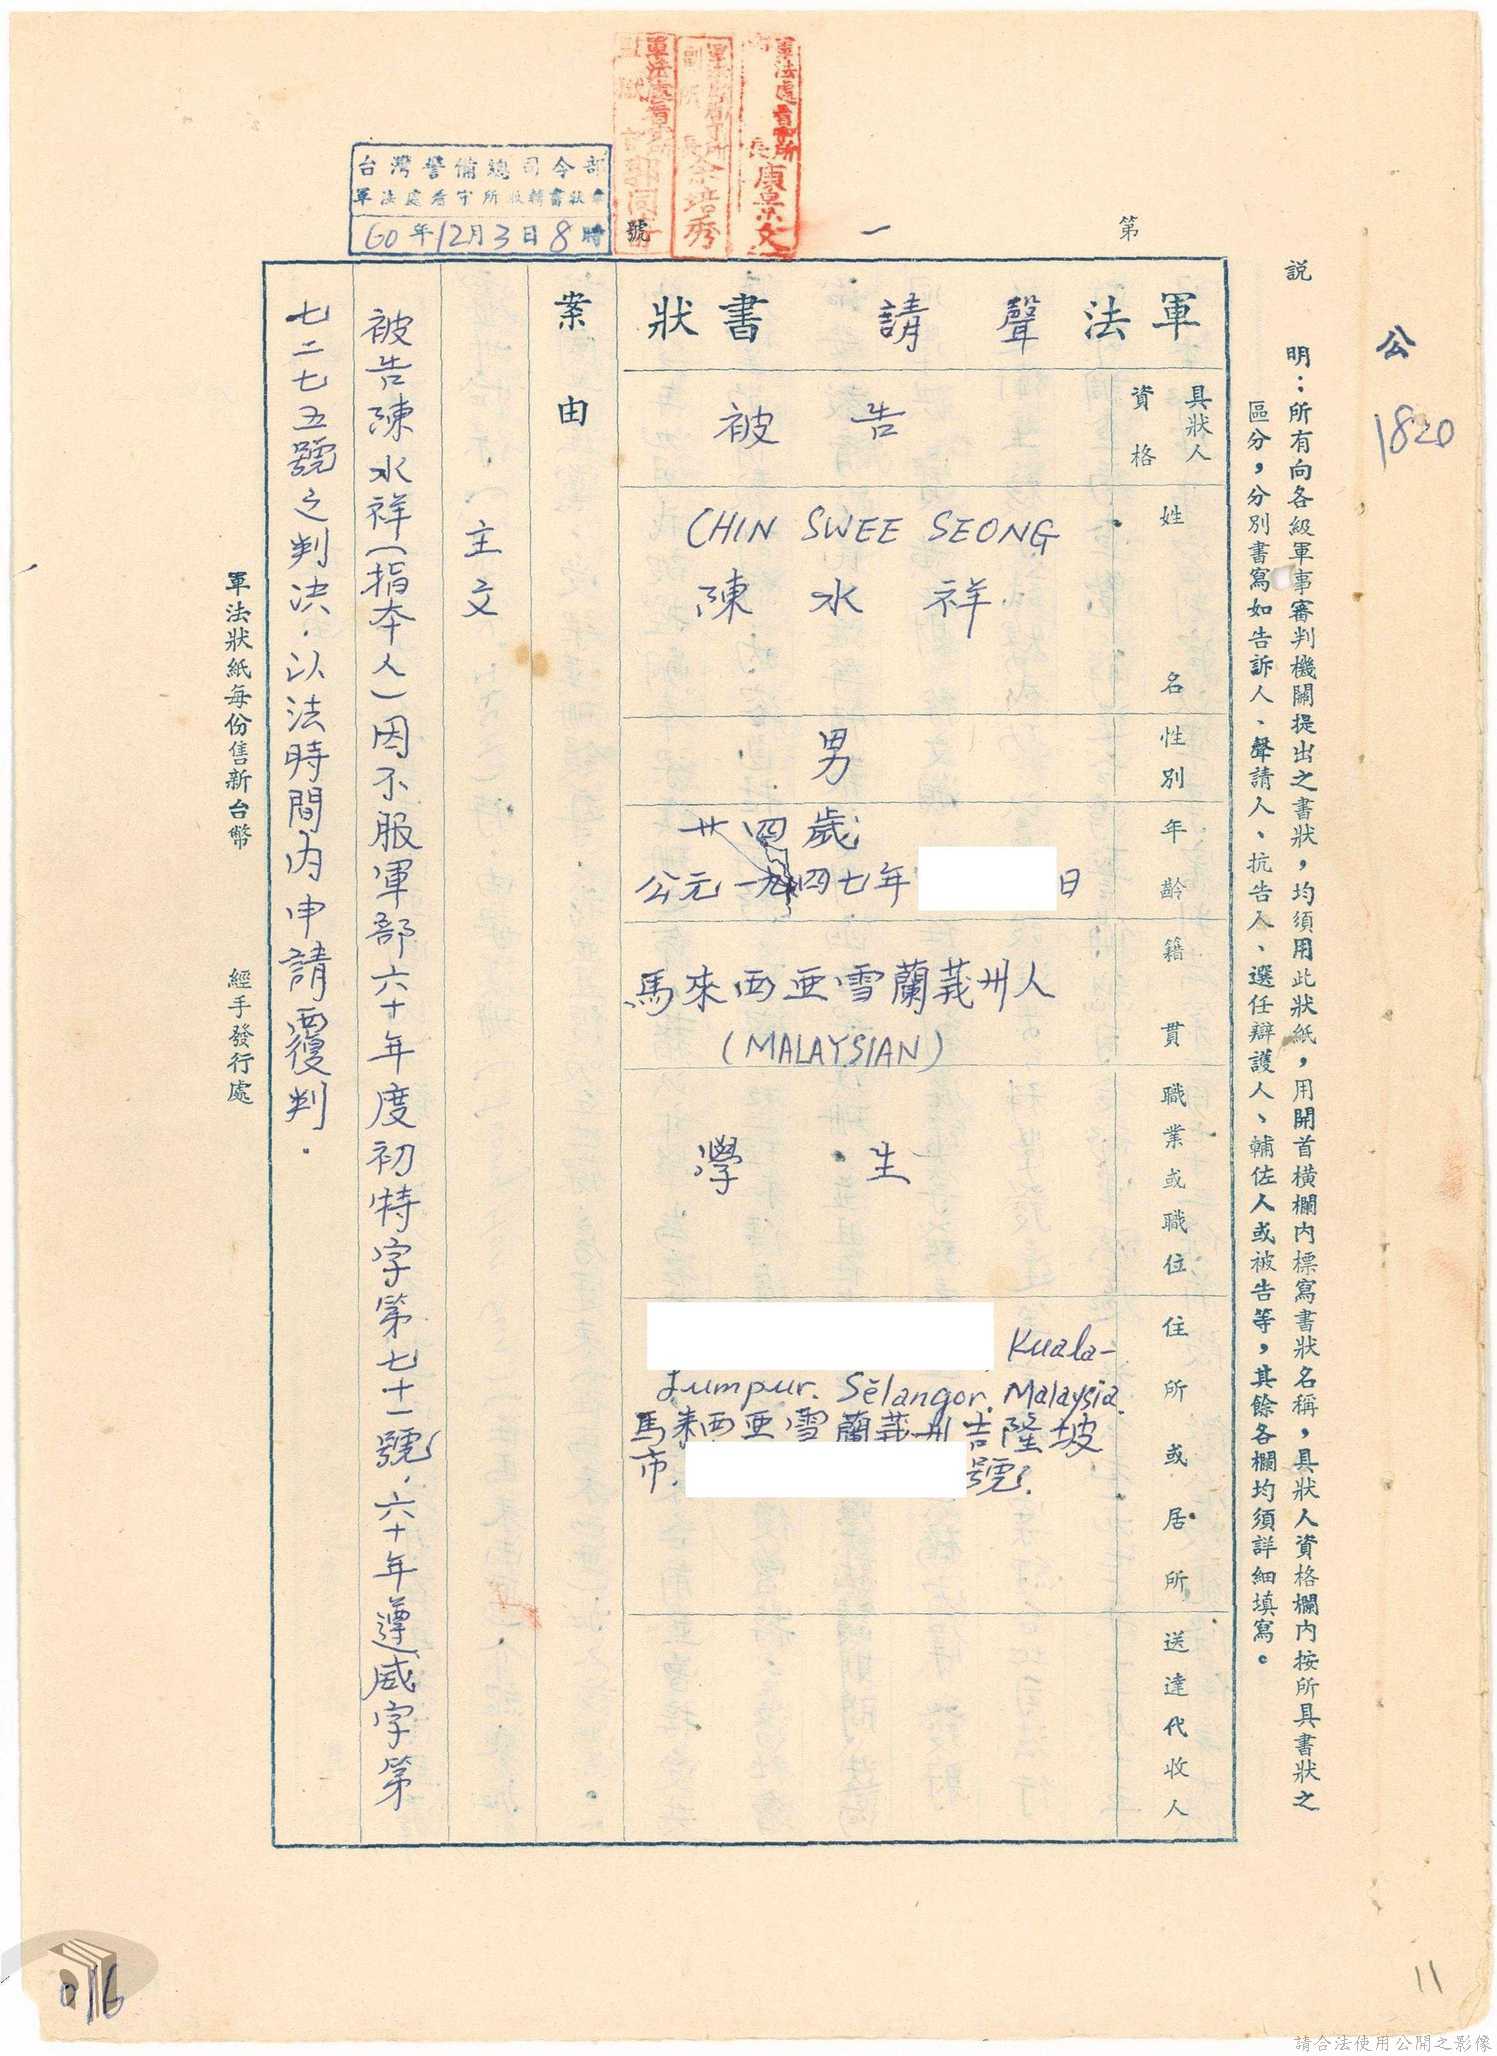 公
1820
説明：所有向各級軍事審判機關提出之書狀，均須用此狀紙，用開首橫欄內標寫書狀名稱，具狀人資格欄內按所具書狀之
區分，分別書寫如告訴人、聲請人、抗告人、選任辯護人、輔佐人或被告等，其餘各欄均須詳細填寫。
第
一
號
軍法處看守所
長康景文
軍法處看守所
副所長余培秀
台灣警備總司令部
軍法處看守所收轉書狀章
60年12月3日8時
軍法聲請書狀
具狀人
資格
被告
姓名
CHIN SWEE SEONG
陳水祥
性別
男
年齡
廿四歲
公元一九四七年
日
籍貫
馬來西亞雪蘭莪州人
(MALAYSIAN)
職業或職位
學生
住所或居所
Kuala-
Lumpur. Sĕlangor. Malaysia.
馬來西亞雪蘭莪州吉隆坡
市.
號.
送達代收人
案由
主文
被告陳水祥(指本人)因不服軍部六十年度初特字第七十一號，六十年遵威字第
七二七五號之判決．以法時間內申請覆判．
軍法狀紙每份售新台幣
經手發行處
016
11
請合法使用公開之影像